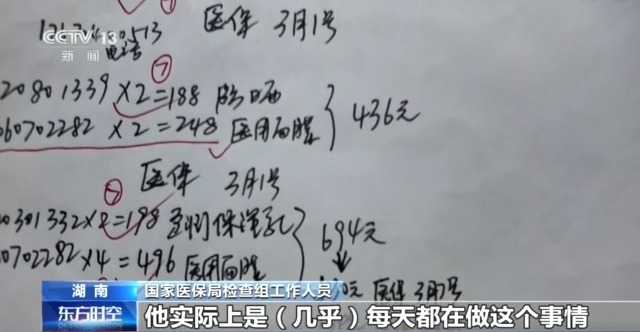 CCTV 13
新闻
医保 3月1号
⑦
20801339 X2=188 防晒
060702282 X2=248 医用面膜
436元
医保 3月1号
0301332X2=198
0702282X4=496 医用面膜
694元
医保
湖南
国家医保局检查组工作人员
东方时空
他实际上是（几乎）每天都在做这个事情